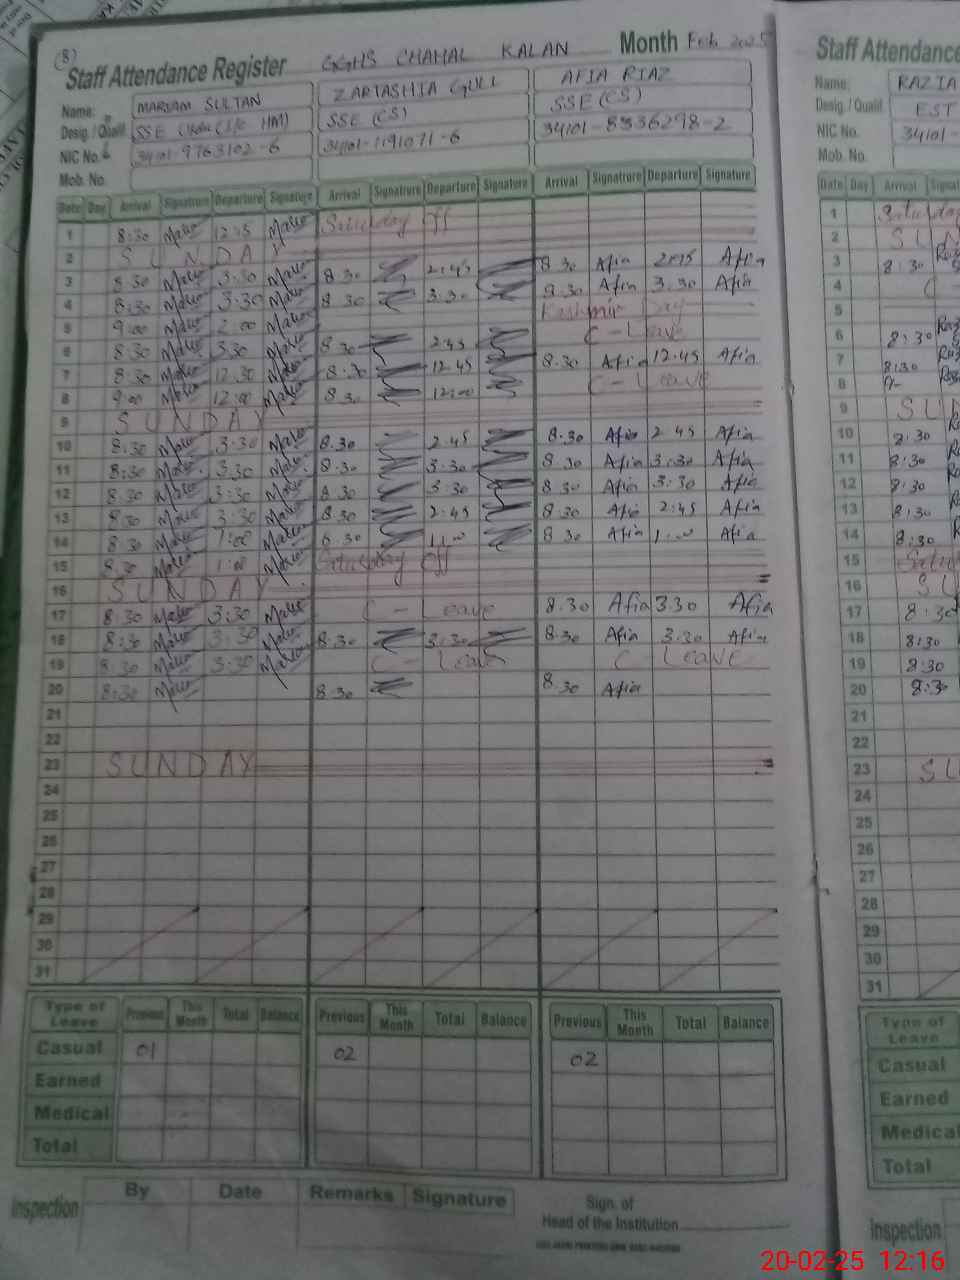 (8)
Staff Attendance Register GGHS CHAHAL KALAN Month Feb 2025
Name: MARYAM SULTAN ZARTASHIA GULL AFIA RIAZ
Desig. / Qualif. SSE Urdu (I/c HM) SSE (CS) SSE (CS)
NIC No. 34101-9763102-6 34101-1191071-6 34101-8336298-2
Mob. No.
Date Day Arrival Signature Departure Signature Arrival Signatrure Departure Signature Arrival Signatrure Departure Signature
1 8:30 12:15 Saturday Off
2 SUNDAY
3 8:30 3:30 8.30 2:45 8.30 Afia 2:45 Afia
4 8:30 3:30 8.30 3.30 8.30 Afia 3.30 Afia
5 9:00 2:00 Kashmir Day
6 8:30 3:30 8.30 2:45 C-Leave
7 8:30 12:30 8.30 12.45 8.30 Afia 12:45 Afia
8 9:00 12:00 8.30 12:00 C-Leave
9 SUNDAY
10 8:30 3:30 8.30 2:45 8.30 Afia 2:45 Afia
11 8:30 3:30 8:30 3:30 8.30 Afia 3:30 Afia
12 8:30 3:30 8.30 3:30 8.30 Afia 3.30 Afia
13 8:30 3:30 8.30 2:45 8.30 Afia 2:45 Afia
14 8:30 1:00 8.30 11:00 8.30 Afia 1:00 Afia
15 8:30 1:00 Saturday Off
16 SUNDAY
17 8:30 3:30 C-Leave 8.30 Afia 3.30 Afia
18 8:30 3:30 8.30 3:30 8.30 Afia 3.30 Afia
19 8:30 3:30 C-Leave C Leave
20 8:30 8:30 8.30 Afia
21
22
23 SUNDAY
24
25
26
27
28
29
30
31
Type of Leave Previous This Month Total Balance Previous This Month Total Balance Previous This Month Total Balance
Casual 01 02 02
Earned
Medical
Total
Inspection By Date Remarks Signature
Sign. of
Head of the Institution
Staff Attendance
Name: RAZIA
Desig. / Qualif. EST
NIC No. 34101-
Mob. No.
Date Day Arrival
1 Saturday
2 SUN
3 8:30
4
5
6 8:30
7 8:30
8
9 SUN
10 8:30
11 8:30
12 8:30
13 8:30
14 8:30
15
16 SU
17 8:30
18 8:30
19 8:30
20 8:30
21
22
23 SU
24
25
26
27
28
29
30
31
Type of Leave
Casual
Earned
Medical
Total
Inspection
20-02-25 12:16